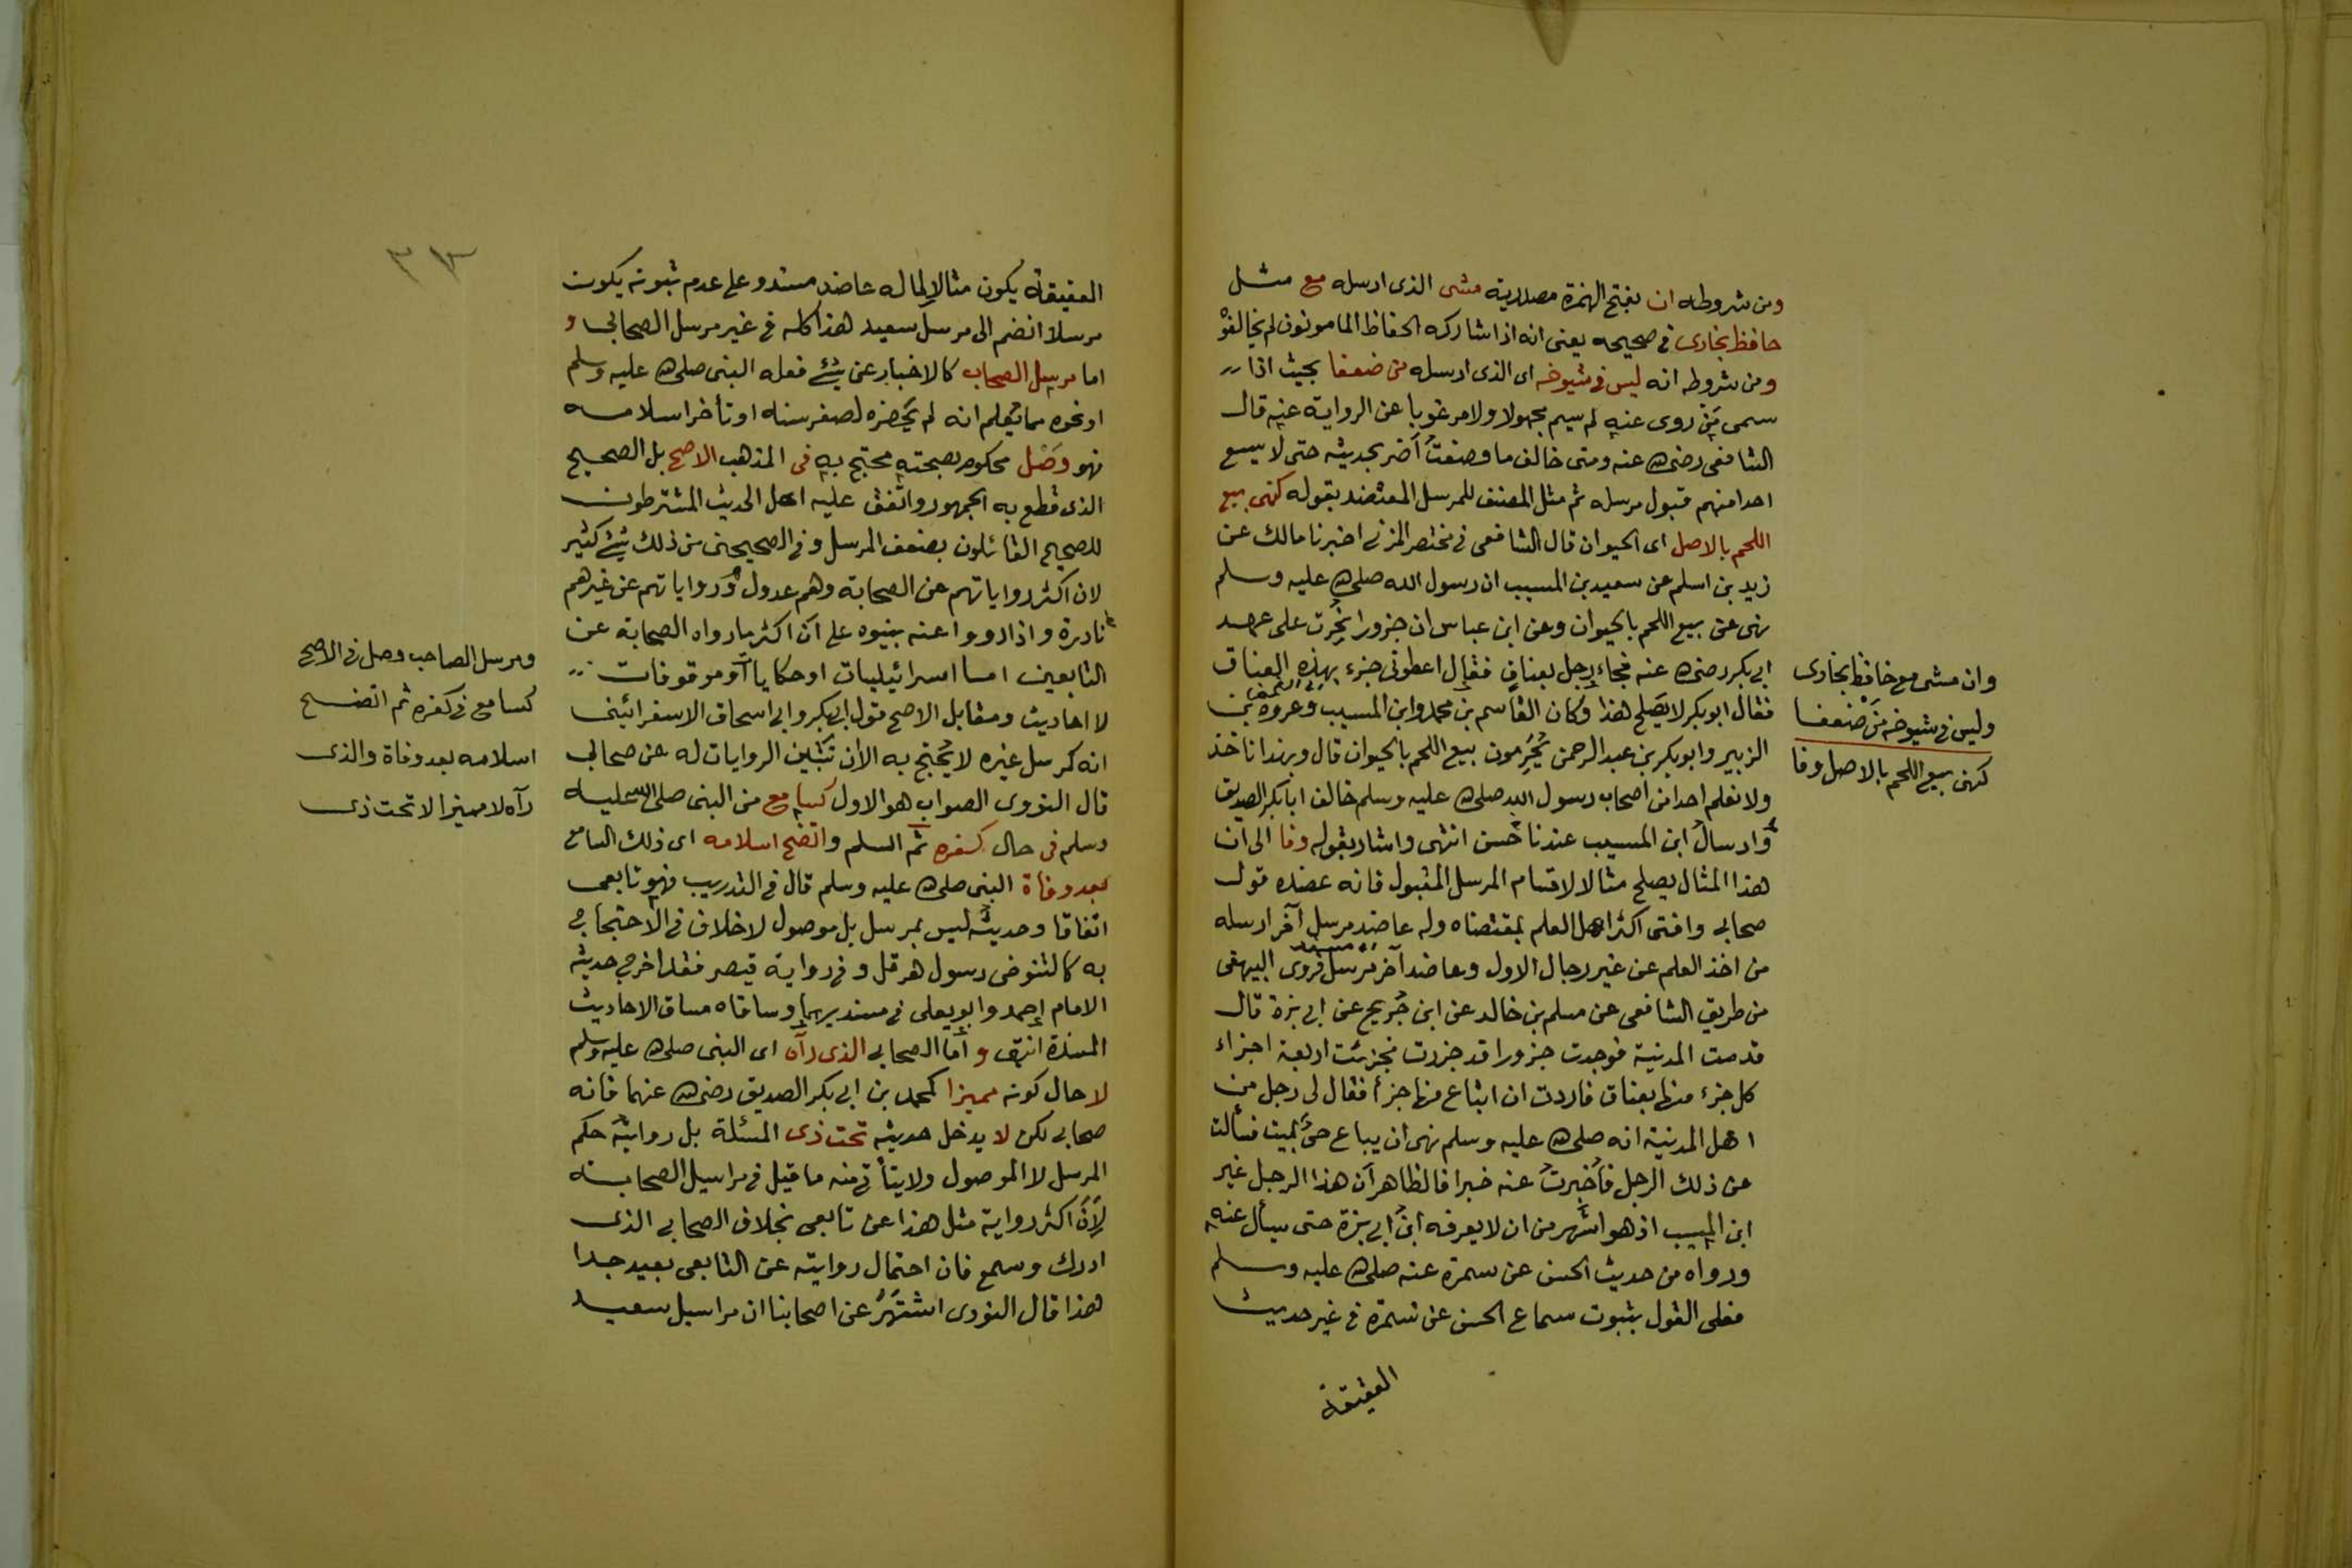 ومن شروطه ان بفتح الهمزة مصدرية مشى الذى ارسله مع مثل
حافظ بخارى فى صحيحه يعنى انه اذا شاركه الحفاظ المامونون لم يخالفوْ
ومن شروطه انه ليس فى شيوخه اى الذى ارسله من ضعفا بحيث اذا
سمى مَن روى عنه لم يسم مجهولا ولا مرغوبا عن الرواية عنه قال
الشافعى رضى الله عنه ومتى خالف ما وصفتُ أضر بحديثه حتى لا يسع
احدا منهم قبول مرسله ثم مثل المصنف للمرسل المعتضد بقوله كنهى بيع
اللحم بالاصل اى الحيوان قال الشافعى فى مختصر المزنى اخبرنا مالك عن
زيد بن اسلم عن سعيد بن المسيب ان رسول الله صلى الله عليه وسلم
نهى عن بيع اللحم بالحيوان وعن ابن عباس ان جزورا نُحِرت على عهد
ابى بكر رضى الله عنه فجاء رجل بعناق فقال اعطونى جزء بهذه العناق
فقال ابو بكر لا يَصلح هذا وكان القاسم بن محمد وابن المسيب وعروة بن
الزبير وابو بكر بن عبد الرحمن يُحَرِّمون بيع اللحم بالحيوان قال وبهذا ناخذ
ولا نعلم احدا من اصحاب رسول الله صلى الله عليه وسلم خالف ابا بكر الصديق
وارسالُ ابن المسيب عندنا حَسن انتهى واشار بقوله وفا الى ان
هذا المثال يصلح مثالا لاقسام المرسل المقبول فانه عضده قول
صحابى وافتى اكثر اهل العلم بمقتضاه وله عاضد مرسل آخر ارسله
من اخذ العلم عن غير رجال الاول وعاضد آخر مرسل فروى البيهقى
من طريق الشافعى عن مسلم بن خالد عن ابن جُريج عن ابى بزة قال
قدمت المدينة فوجدت جزورا قد جزرت فجزئت اربعة اجزاء
كل جزء منها بعناق فاردت ان ابتاع منها جزأ فقال لى رجل من
اهل المدينة انه صلى الله عليه وسلم نهى ان يباع حىٌّ بميت فسألت
عن ذلك الرجل فأُخبِرتُ عنه خبرا فالظاهر أن هذا الرجل غير
ابن المسيب اذ هو اشهر من ان لا يعرفه ابنُ ابى بزة حتى يسأل عنه
ورواه من حديث الحسن عن سمرة عنه صلى الله عليه وسلم
فعلى القول بثبوت سماع الحسن عن سَمُرة فى غير حديث
العقيقة
وان مشى مع حافظ بخارى
وليس فى شيوخه مَنْ ضعفا
كنهى بيع اللحم بالاصل وفا
٣٣
العقيقة يكون مثالا لِما له عاضد مسند وعلى عدم ثبوته يكون
مرسلا انضم الى مرسل سعيد هذا كله فى غير مرسل الصحابى و
اما مرسل الصحاب كالاخبار عن شئ فعله النبى صلى الله عليه وسلم
او نحوه مما يُعلم انه لم يَحضره لصغر سنه او تأخر اسلامه
فهو وَصْل محكوم بصحته محتج به فى المذهب الاصح بل الصحيح
الذى قطع به الجمهور واتّفق عليه اهل الحديث المشترطون
للصحيح القائلون بضعف المرسل وفى الصحيحين من ذلك شئ كثير
لان اكثر رواياتهم عن الصحابة وهم عدول ورواياتهم عن غيرهم
نادرة واذا رووا عنه بينوه على أن اكثر ما رواه الصحابة عن
التابعين امسا اسرائيليات او حكايات او موقوفات
لا احاديث ومقابل الاصح قول ابى بكر وابى اسحاق الاسفرائينى
انه كمرسل غيره لا يُحتج به الا ان تَبَيَّن الروايات له عن صحابى
قال النووى الصواب هو الاول كسامع من النبى صلى الله عليه
وسلم فى حال كفره ثم اسلم واتضح اسلامه اى ذلك السامع
بعد وفاة النبى صلى الله عليه وسلم قال فى التدريب فهو تابعى
اتفاقا وحديثُه ليس بمرسل بل موصول لا خلاف فى الاحتجاج
به كالتنوخى رسول هرقل وفى رواية قيصر فقد اخرج حديثه
الامام احمد وابو يعلى فى مسنديهما وساقاه مساق الاحاديث
المسندة انتهى و أما الصحابى الذى رآه اى النبى صلى الله عليه وسلم
لا حال كونه مميزا كمحمد بن ابى بكر الصديق رضى الله عنهما فانه
صحابى لكن لا يدخل حديثه تحت ذى المسئلة بل روايتُه حكم
المرسل لا الموصول ولا يتأتى فيه ما قيل فى مراسيل الصحابة
لأن اكثر رواية مثل هذا عن تابعى بخلاف الصحابى الذى
ادرك وسمع فان احتمال روايته عن التابعى بعيد جدا
هذا قال النووى اشتَهَر عن اصحابنا ان مراسيل سعيد
ومرسل الصاحب وصل فى الاصح
كسامع فى كفره ثم اتضح
اسلامه بعد وفاة والذى
رآه لا مميزا لا تحت ذى